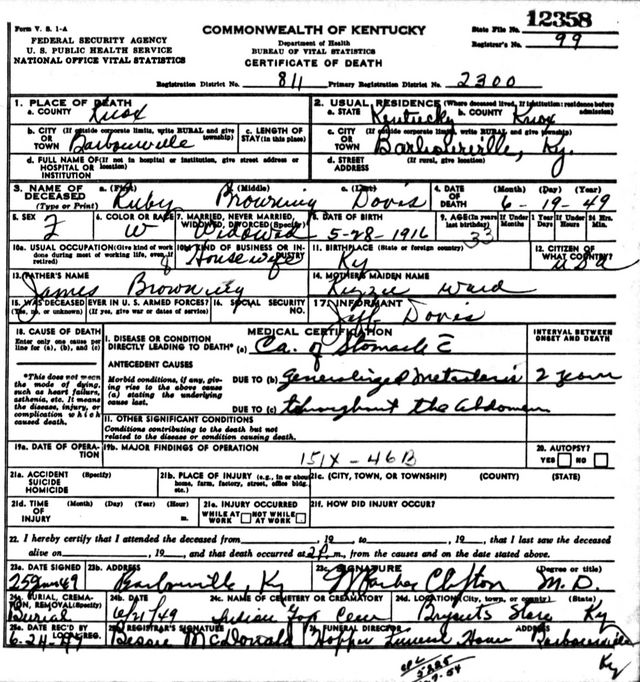 Form V. S. 1-A
FEDERAL SECURITY AGENCY
U. S. PUBLIC HEALTH SERVICE
NATIONAL OFFICE VITAL STATISTICS
COMMONWEALTH OF KENTUCKY
Department of Health
BUREAU OF VITAL STATISTICS
CERTIFICATE OF DEATH
State File No. 12358
Registrar's No. 99
Registration District No. 811 Primary Registration District No. 2300
1. PLACE OF DEATH
a. COUNTY Knox
2. USUAL RESIDENCE (Where deceased lived, If institution: residence before admission)
a. STATE Kentucky b. COUNTY Knox
b. CITY (If outside corporate limits, write RURAL and give township)
OR TOWN Barbourville
c. LENGTH OF STAY (in this place)
c. CITY (If outside corporate limits, write RURAL and give township)
OR TOWN Ky.
d. FULL NAME OF (If not in hospital or institution, give street address or location)
HOSPITAL OR INSTITUTION
d. STREET ADDRESS (If rural, give location)
3. NAME OF DECEASED (Type or Print)
a. (First) Ruby (Middle) Browning c. (Last) Davis
4. DATE OF DEATH (Month) (Day) (Year) 6-19-49
5. SEX F
6. COLOR OR RACE W
7. MARRIED, NEVER MARRIED, WIDOWED, DIVORCED (Specify) Widowed
8. DATE OF BIRTH 5-28-1916
9. AGE (In years last birthday) 33 If Under 1 Year Months Days If Under 24 Hrs. Hours Min.
10a. USUAL OCCUPATION (Give kind of work done during most of working life, even if retired)
10b. KIND OF BUSINESS OR INDUSTRY
Housewife
11. BIRTHPLACE (State or foreign country) Ky
12. CITIZEN OF WHAT COUNTRY? USA
13. FATHER'S NAME James Browning
14. MOTHER'S MAIDEN NAME Lizzie Ward
15. WAS DECEASED EVER IN U. S. ARMED FORCES?
(Yes, no, or unknown) (If yes, give war or dates of service)
16. SOCIAL SECURITY NO.
17. INFORMANT Jeff Davis
18. CAUSE OF DEATH
Enter only one cause per line for (a), (b), and (c)
MEDICAL CERTIFICATION
INTERVAL BETWEEN ONSET AND DEATH
I. DISEASE OR CONDITION DIRECTLY LEADING TO DEATH* (a) Ca. of Stomach c̄
*This does not mean the mode of dying, such as heart failure, asthenia, etc. It means the disease, injury, or complication which caused death.
ANTECEDENT CAUSES
Morbid conditions, if any, giving rise to the above cause (a) stating the underlying cause last.
DUE TO (b) generalized Metastasis 2 years
DUE TO (c) throughout the Abdomen
II. OTHER SIGNIFICANT CONDITIONS
Conditions contributing to the death but not related to the disease or condition causing death.
19a. DATE OF OPERATION
19b. MAJOR FINDINGS OF OPERATION
151X-46B
20. AUTOPSY?
YES NO
21a. ACCIDENT (Specify) SUICIDE HOMICIDE
21b. PLACE OF INJURY (e.g., in or about home, farm, factory, street, office bldg. etc.)
21c. (CITY, TOWN, OR TOWNSHIP) (COUNTY) (STATE)
21d. TIME OF INJURY (Month) (Day) (Year) (Hour) m.
21e. INJURY OCCURRED WHILE AT WORK NOT WHILE AT WORK
21f. HOW DID INJURY OCCUR?
22. I hereby certify that I attended the deceased from , 19 to , 19 , that I last saw the deceased
alive on , 19 , and that death occurred at 2P. m., from the causes and on the date stated above.
23a. DATE SIGNED 25 June 49
23b. ADDRESS Barbourville, Ky
23c. SIGNATURE Clifton (Degree or title) M. D.
24a. BURIAL, CREMATION, REMOVAL (Specify) Burial
24b. DATE 6/21/49
24c. NAME OF CEMETERY OR CREMATORY Indian Gap Cem
24d. LOCATION (City, town, or county) (State) Bryants Store Ky
25a. DATE REC'D BY LOCAL REG. 6-24-49
25. REGISTRAR'S SIGNATURE Bessie McDonald
26. FUNERAL DIRECTOR Hopper Funeral Home
ADDRESS Barbourville Ky